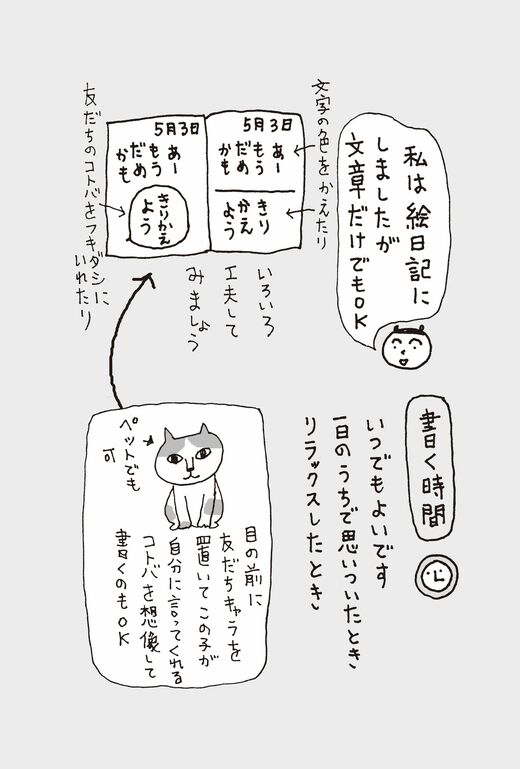 私は絵日記に
しましたが
文章だけでもOK
文字の色をかえたり
5月3日
あー
もう
だめ
かも
きり
かえ
よう
5月3日
あー
もう
だめ
かも
きりかえ
よう
友だちのコトバをフキダシに
いれたり
いろいろ
工夫して
みましょう
書く時間
いつでもよいです
一日のうちで思いついたとき
リラックスしたとき
ペットでも
可
目の前に
友だちキャラを
置いてこの子が
自分に言ってくれる
コトバを想像して
書くのもOK